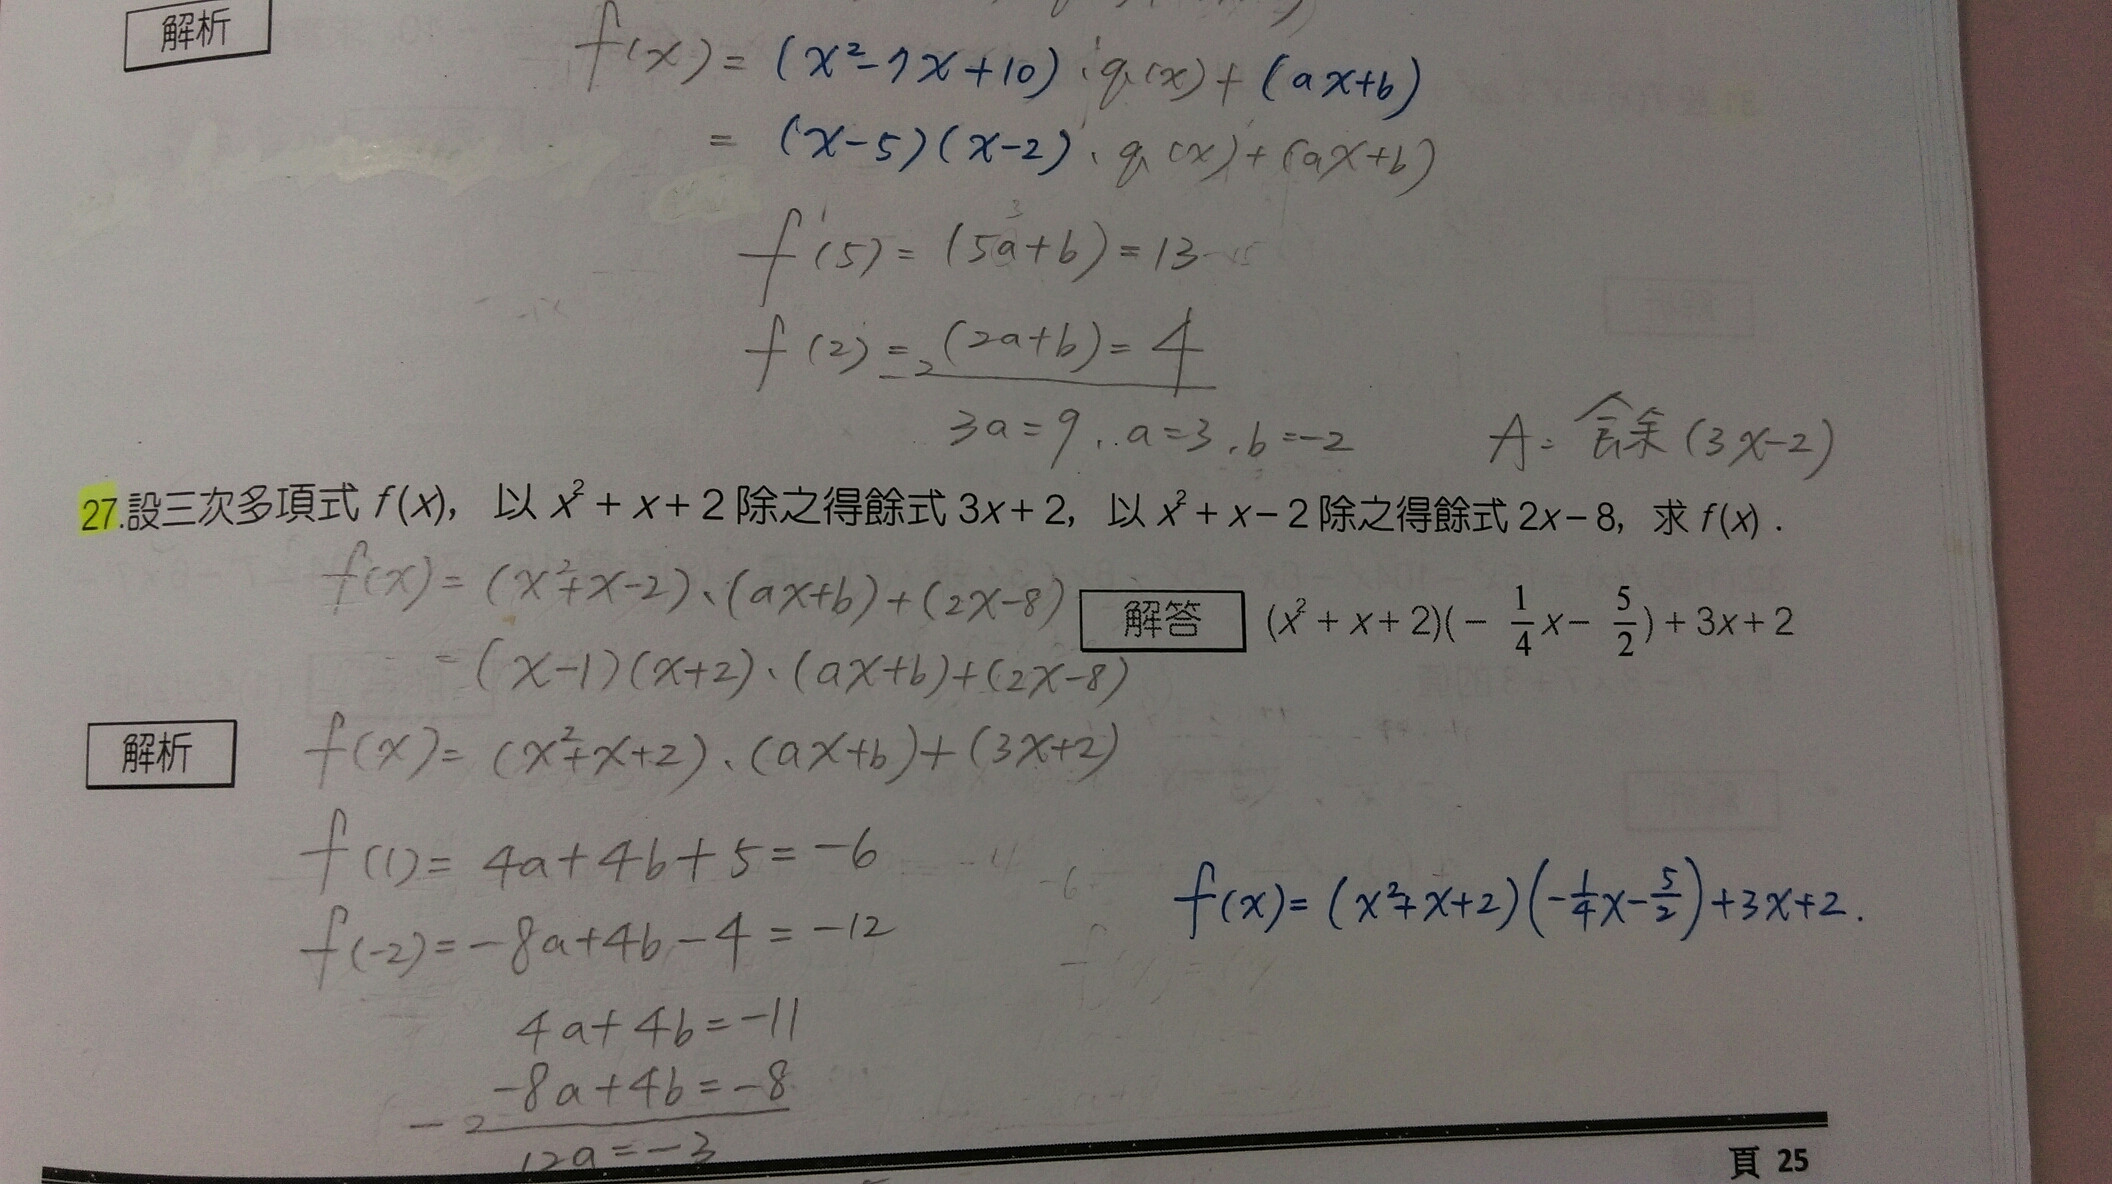 解析
f(x) = (x²-7x+10)·q(x)+(ax+b)
= (x-5)(x-2)·q(x)+(ax+b)
f(5) = (5a+b) = 13
f(2) = (2a+b) = 4
3a = 9, a=3, b=-2
A: 餘 (3x-2)
27.設三次多項式 f(x), 以 x² + x + 2 除之得餘式 3x + 2, 以 x² + x − 2 除之得餘式 2x − 8, 求 f(x) .
f(x) = (x²+x-2)·(ax+b)+(2x-8)
解答 (x² + x + 2)(− 1/4 x − 5/2) + 3x + 2
= (x-1)(x+2)·(ax+b)+(2x-8)
解析
f(x) = (x²+x+2)·(ax+b)+(3x+2)
f(1) = 4a+4b+5 = -6
f(x) = (x²+x+2)(-1/4x-5/2)+3x+2.
f(-2) = -8a+4b-4 = -12
4a+4b = -11
-8a+4b = -8
12a = -3
頁 25